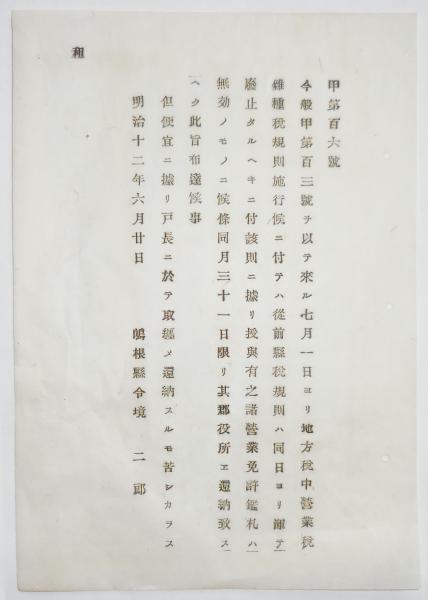 甲第百六號
今般甲第百三號ヲ以テ來ル七月一日ヨリ地方稅中營業稅
雜種稅規則施行候ニ付テハ從前縣稅規則ハ同日ヨリ渾テ
廢止タルヘキニ付該則ニ據リ授與有之諸營業免許鑑札ハ
無効ノモノニ候條同月三十一日限リ其郡役所エ還納致ス
ヘク此旨布達候事
但便宜ニ據リ戸長ニ於テ取纏メ還納スルモ苦シカラス
明治十二年六月廿日 嶋根縣令境 二郎
租